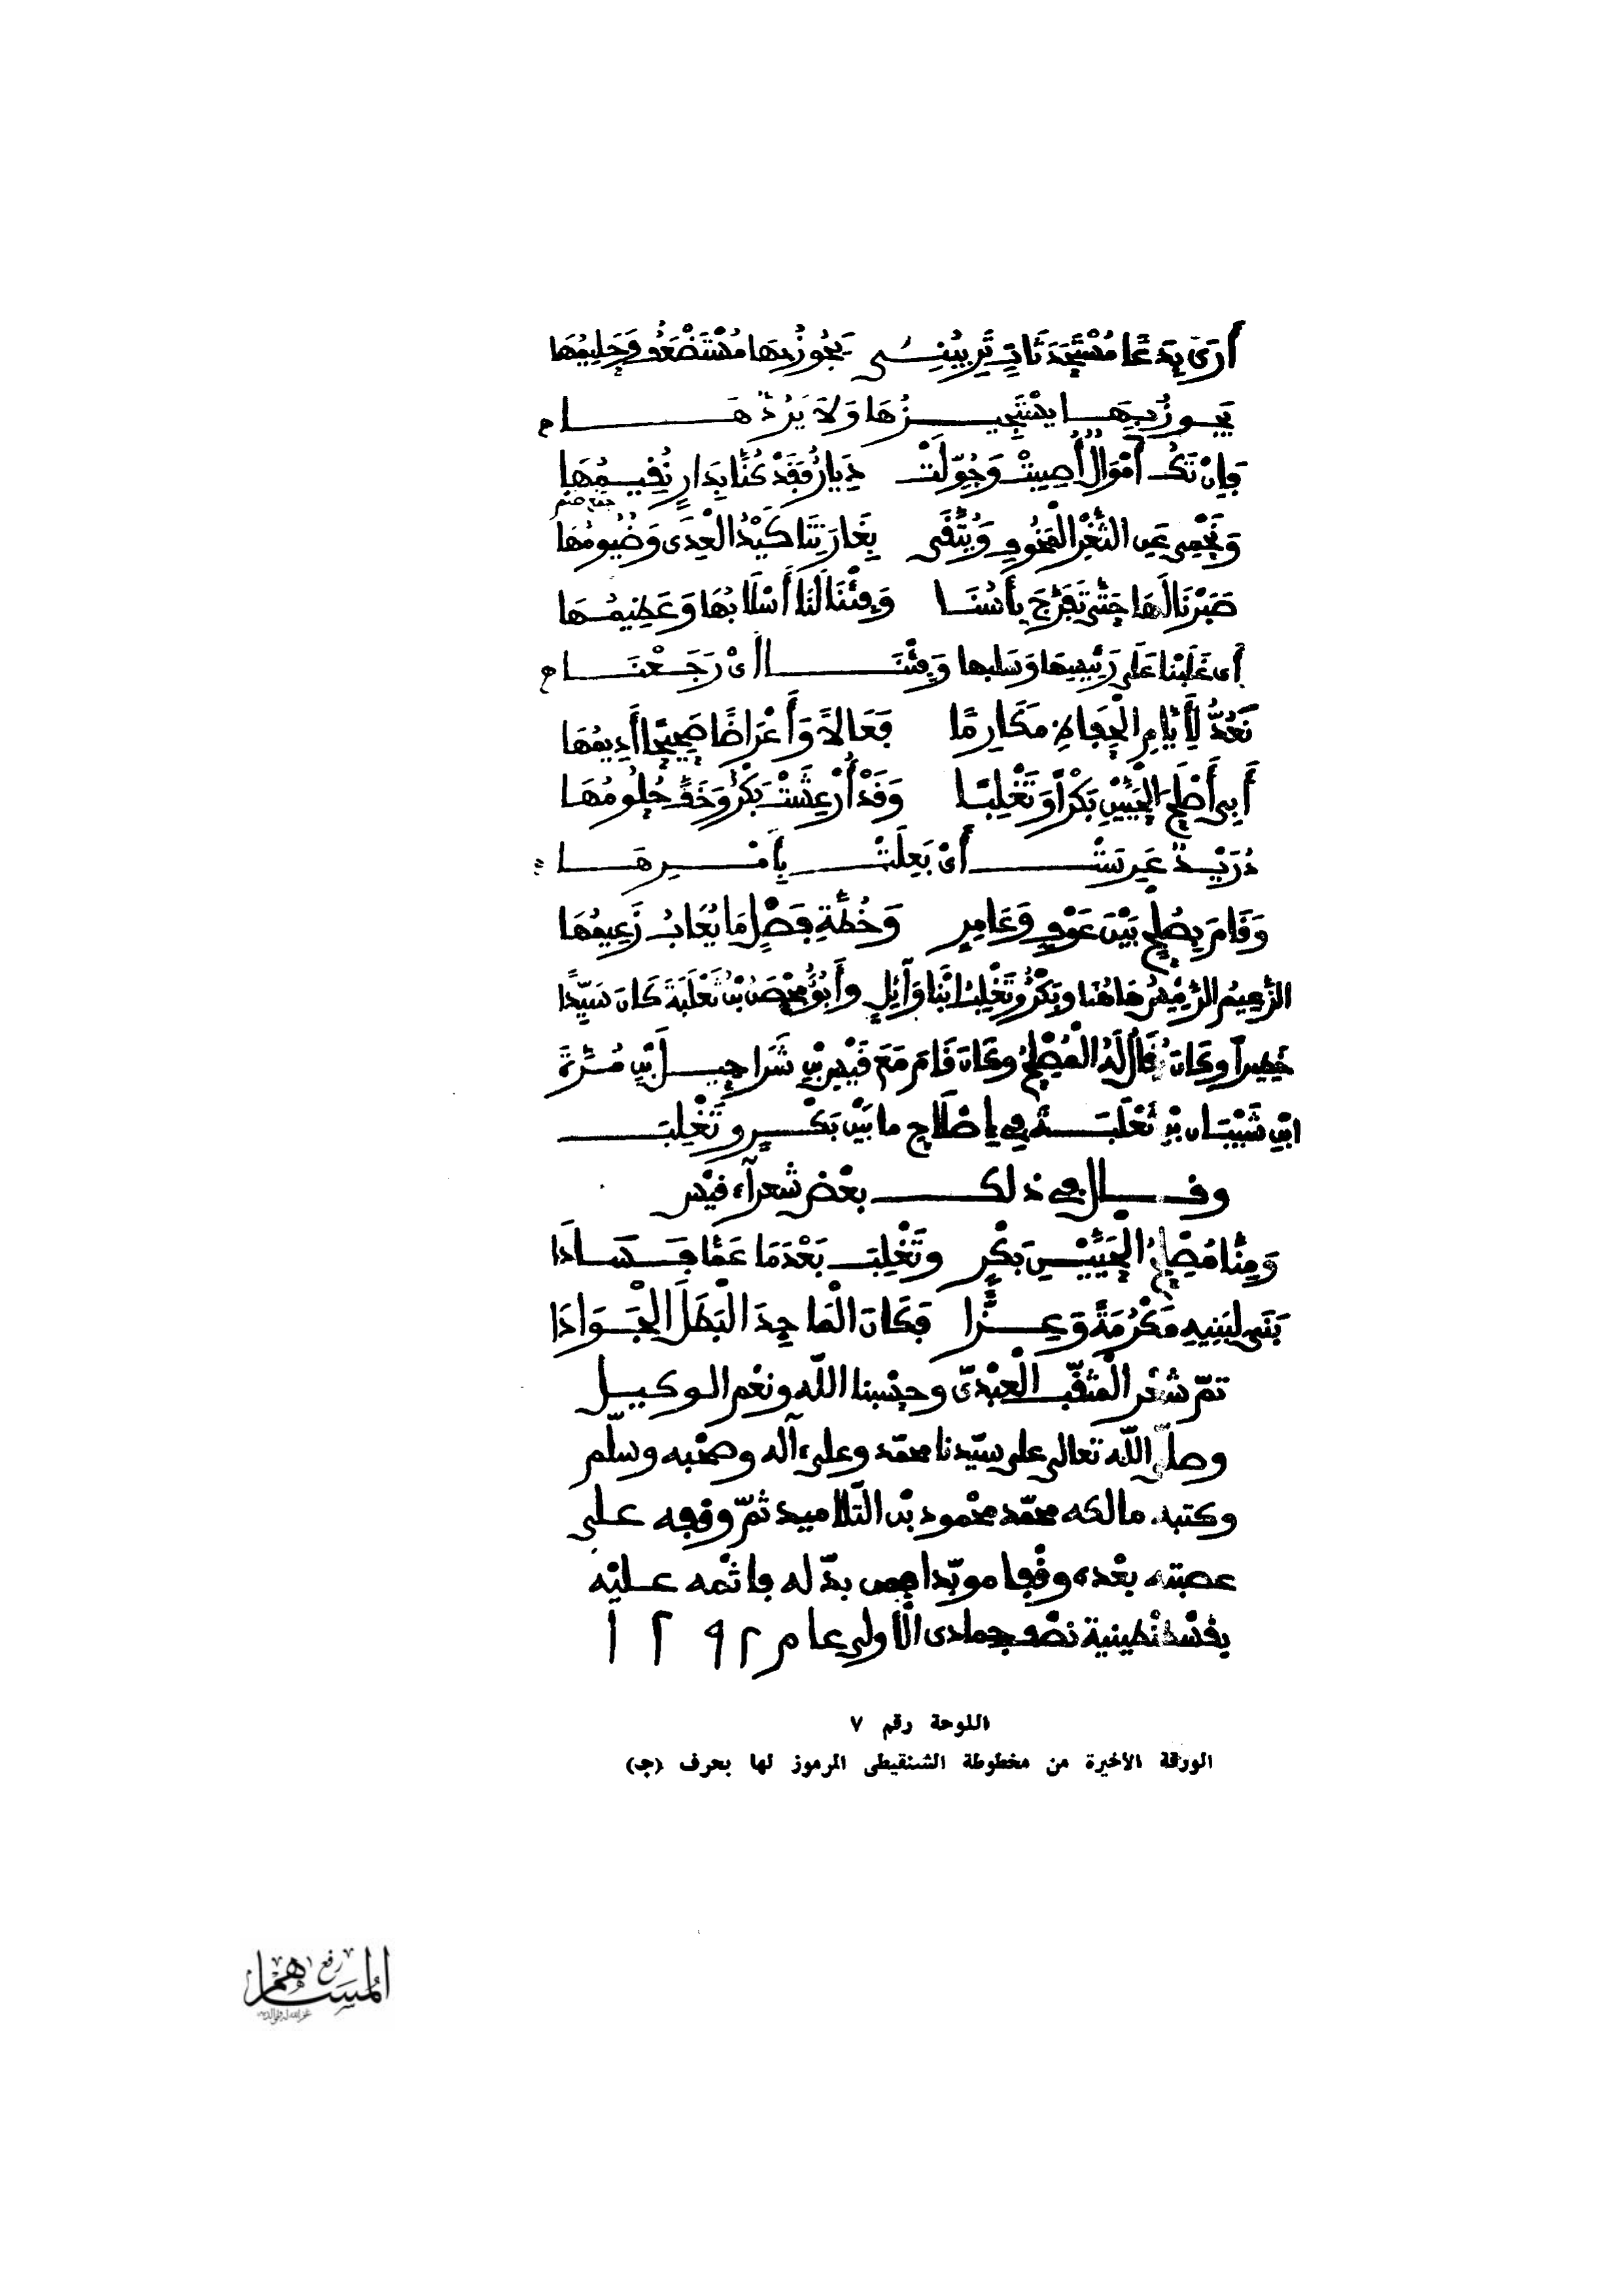 أَرَى بِدَعًا مُسْتَحْدَثَاتٍ تُرِيبُنِى يَجُوزُ بِهَا مُسْتَضْعَفٌ وَحَلِيمُهَا
يجوزُ بِهَا يسْتَجِيزُهَا وَلَا يَرُدُّهَا م
فَإِنْ تَكُ أَمْوَالٌ أُصِيبَتْ وَحُوِّلَتْ دِيَارٌ فَقَدْ كُنَّا بِدَارٍ نُقِيمُهَا
جمع ضيم
وَنَحْمِى عَنِ الثَّغْرِ الْمَخُوفِ وَيُتَّقَى بِغَارَتِنَا كَيْدُ الْعِدَى وَضُيُومُهَا
صَبَرْنَا لَهَا حَتَّى تَفَرَّجَ بَأْسُنَا وَفِئْنَا لَنَا أَسْلَابُهَا وَعَظِيمُهَا
أى غَلَبْنا عَلَى رَئِيسِهَا وَسَلَبِها وَفِئْنَا أىْ رَجَعْنَا م
نَعُدُّ لِأَيَّامِ الْحِفَاظِ مَكَارِمًا فَعَالاً وَأَعْرَاضًا صَحِيحًا أَدِيمُهَا
أَبِى أَصْلَحَ الْحَيَّيْنِ بَكْرًا وَتَغْلِبًا وَقَدْ أُرْعِشَتْ بَكْرٌ وَخَفَّ حُلُومُهَا
دُرَيْدٌ عَرِسَتْ أَىْ بَعِلَتْ بِأَمْرِهَا
وَقَامَ بِصُلْحٍ بَيْنَ عَوْفٍ وَعَامِرٍ وَخُطَّةِ فَصْلٍ مَا يُعَابُ زَعِيمُهَا
الزَّعِيمُ الرَّئِيسُ هَاهُنَا وبَكْرٌ وتَغْلِبُ ابْنَا وَآئِلٍ وأَبُو مِحْصَنِ بْنُ ثَعْلَبَةَ كَانَ سَيِّدًا
خَطِيرًا وكَانَ يُقَالُ لَهُ الْمُصْلِحُ وكَانَ قَامَ مَعَ قَيْسِ بْنِ شَرَاحِيلَ بْنِ مُرَّةَ
ابْنِ شَيْبَانَ بْنِ ثَعْلَبَةَ فِى إِصْلَاحِ مَا بَيْنَ بَكْرٍ وتَغْلِبَ
وقال فى ذلك بعْض شعرآء قيْس
وَمِنَّا مُصْلِحُ الْحَيَّيْنِ بَكْرٍ وتَغْلِبَ بَعْدَمَا عَمَّا فَسَادَا
بَنَى لِبَنِيهِ مَكْرُمَةً وَعِزًّا فَكَانَ الْمَاجِدَ الْبَطَلَ الْجَوَادَا
تمّ شعْر الْمثقّب الْعبْدىّ وحسْبنا اللّه ونعْم الوكيل
وصلّى اللّه تعالى على سيّدنا محمّد وعلى آله وصحْبه وسلّم
وكتبه مالكه محمّد محْمود بْن التّلاميد ثمّ وقفه على
عصبته بعْده وقْفا موبّدا فمن بدّله فإثْمه عليْه
بقسْطنْطينية نصْف جمادى الْأولى عام ١٢٩٢
اللوحة رقم ٧
الورقة الأخيرة من مخطوطة الشنقيطى المرموز لها بحرف (جـ)
رفع
المساهم